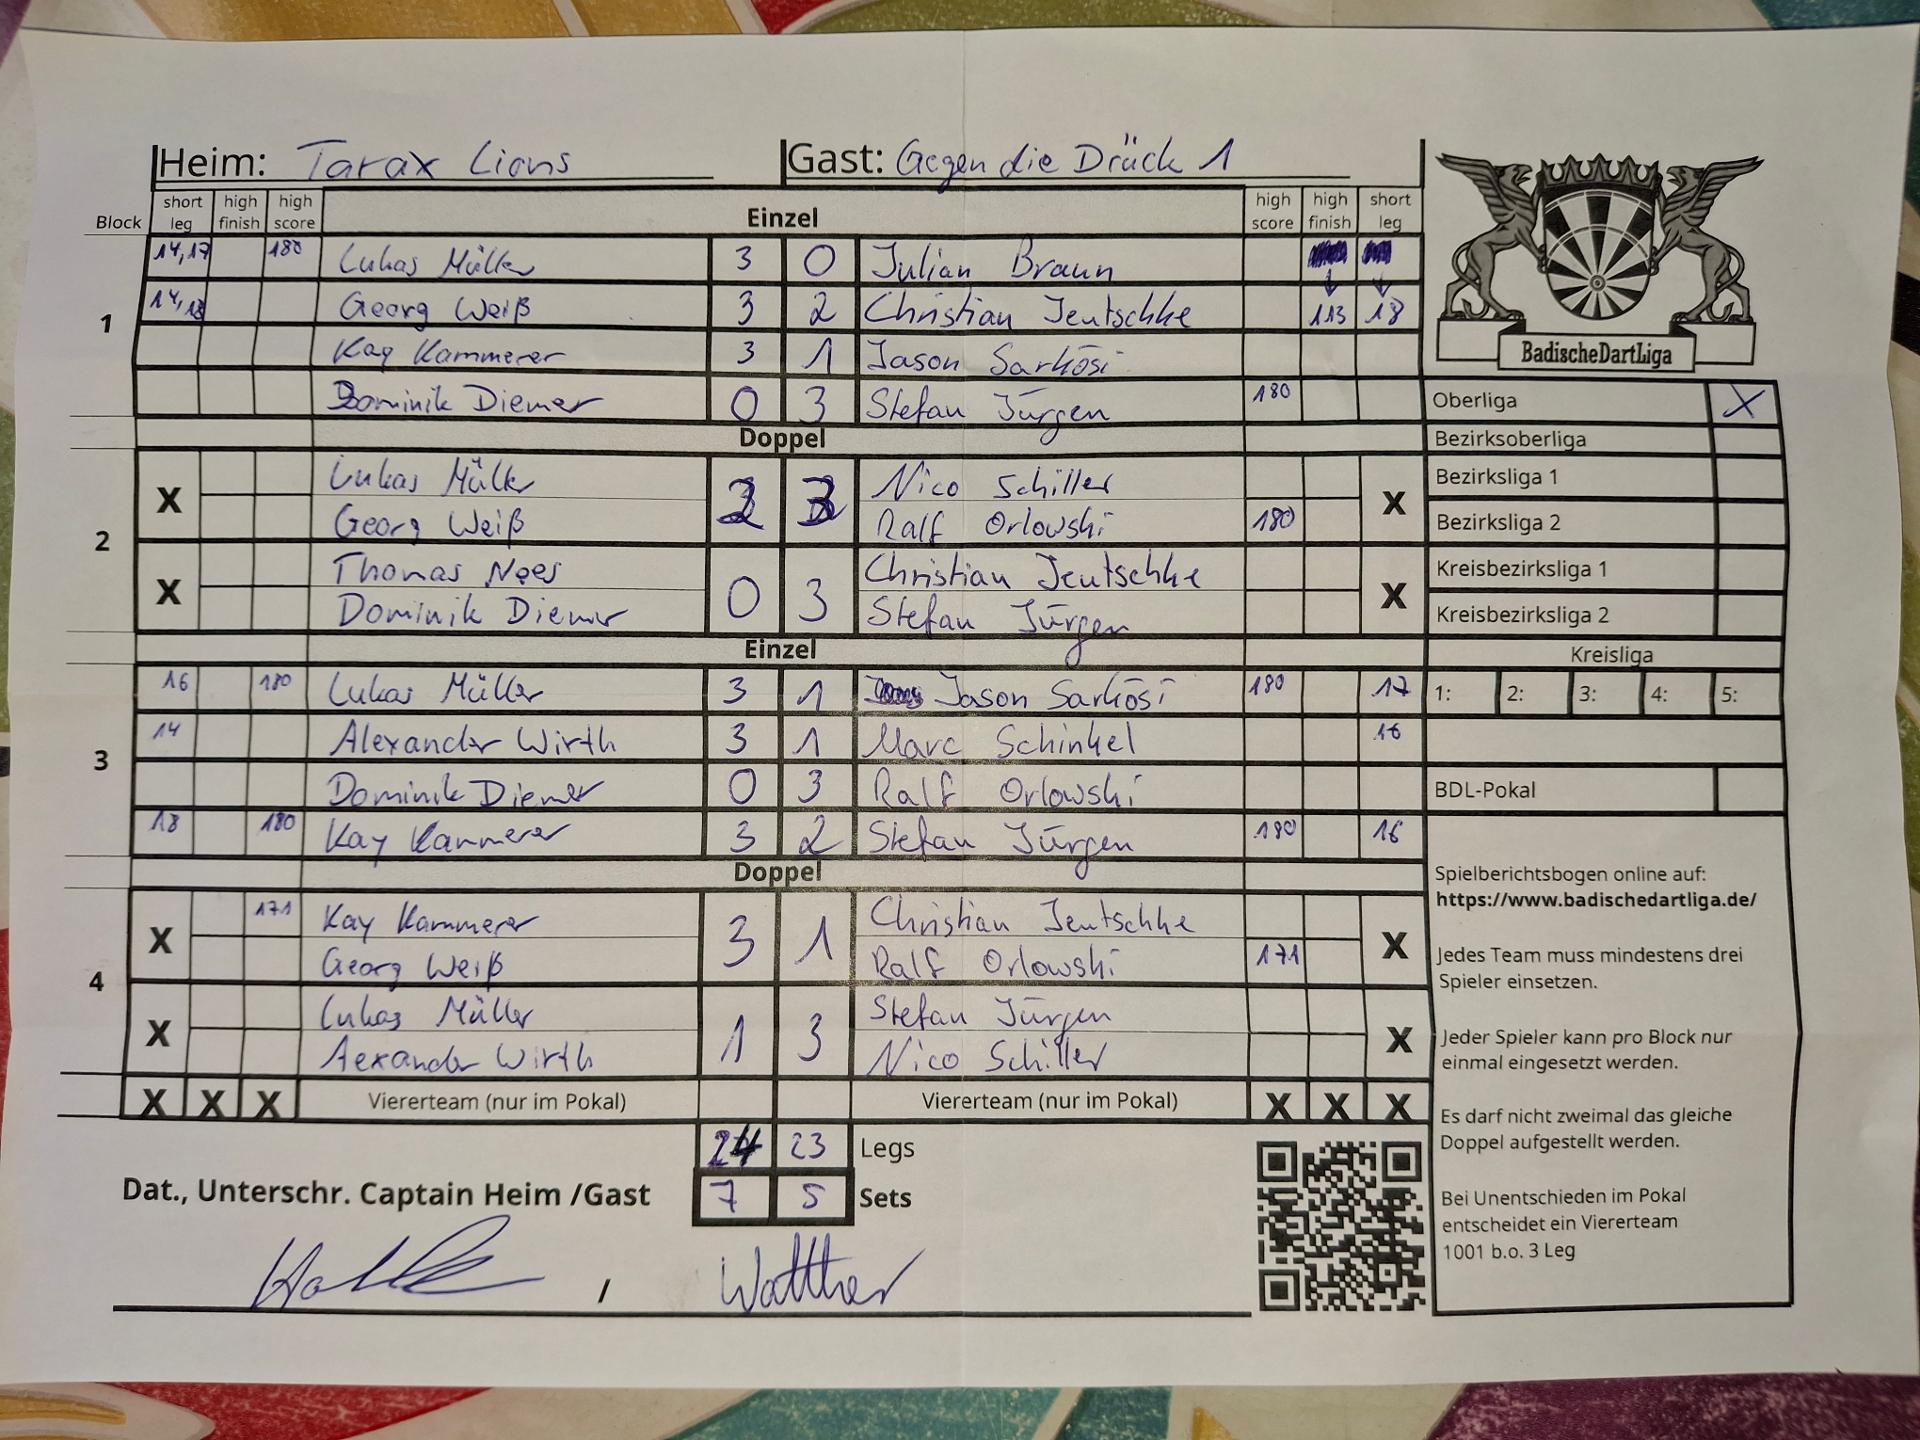 Heim: Tarax Lions Gast: Gegen die Drück 1
Block short leg high finish high score Einzel high score high finish short leg
14,17 180 Lukas Müller 3 0 Julian Braun
1 14,18 Georg Weiß 3 2 Christian Jeutschke 113 18
Kay Kammerer 3 1 Jason Sarkösi
Dominik Diemer 0 3 Stefan Jürgen 180
Doppel
2 X Lukas Müller 2 3 Nico Schiller X
Georg Weiß Ralf Orlowski 180
X Thomas Nees 0 3 Christian Jeutschke X
Dominik Diemer Stefan Jürgen
Einzel
3 16 180 Lukas Müller 3 1 Jason Sarkösi 180 17
14 Alexander Wirth 3 1 Marc Schinkel 16
Dominik Diemer 0 3 Ralf Orlowski
18 180 Kay Kammerer 3 2 Stefan Jürgen 180 16
Doppel
4 X 171 Kay Kammerer 3 1 Christian Jeutschke X
Georg Weiß Ralf Orlowski 171
X Lukas Müller 1 3 Stefan Jürgen X
Aexander Wirth Nico Schiller
X X X Viererteam (nur im Pokal) Viererteam (nur im Pokal) X X X
24 23 Legs
Dat., Unterschr. Captain Heim /Gast 7 5 Sets
/ Walther
BadischeDartLiga
Oberliga X
Bezirksoberliga
Bezirksliga 1
Bezirksliga 2
Kreisbezirksliga 1
Kreisbezirksliga 2
Kreisliga
1: 2: 3: 4: 5:
BDL-Pokal
Spielberichtsbogen online auf:
https://www.badischedartliga.de/
Jedes Team muss mindestens drei
Spieler einsetzen.
Jeder Spieler kann pro Block nur
einmal eingesetzt werden.
Es darf nicht zweimal das gleiche
Doppel aufgestellt werden.
Bei Unentschieden im Pokal
entscheidet ein Viererteam
1001 b.o. 3 Leg